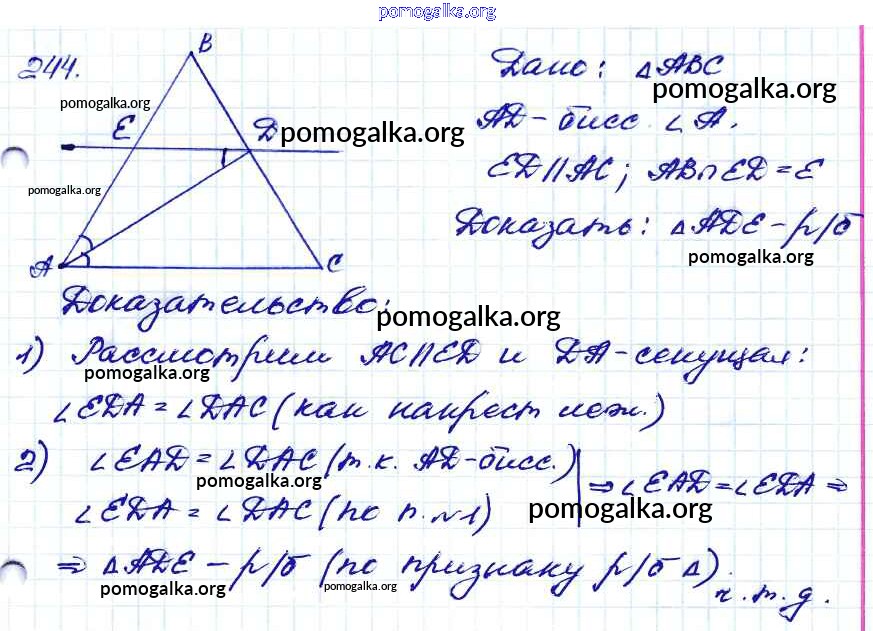 pomogalka.org
244.
B
Дано: △ABC
pomogalka.org
pomogalka.org
E
D
pomogalka.org
AD-бисс ∠A.
ED||AC; AB∩ED=E
pomogalka.org
Доказать: △ADE-р/б
pomogalka.org
A
C
Доказательство:
pomogalka.org
1) Рассмотрим AC||ED и DA-секущая:
pomogalka.org
∠EDA=∠DAC (как накрест леж.)
2) ∠EAD=∠DAC (т.к. AD-бисс.)
pomogalka.org
⇒∠EAD=∠EDA⇒
∠EDA=∠DAC (по п.N1)
pomogalka.org
⇒ △ADE-р/б (по признаку р/б △).
pomogalka.org
pomogalka.org
ч.т.д.